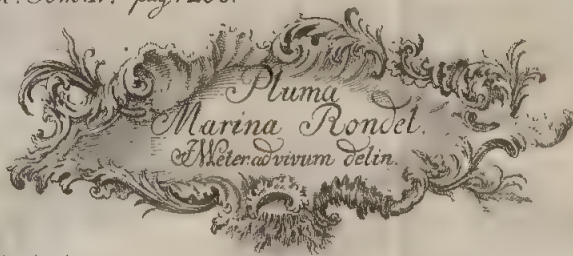 Tom. IV. pag.
Pluma
Marina Rondel.
ad vivum delin.